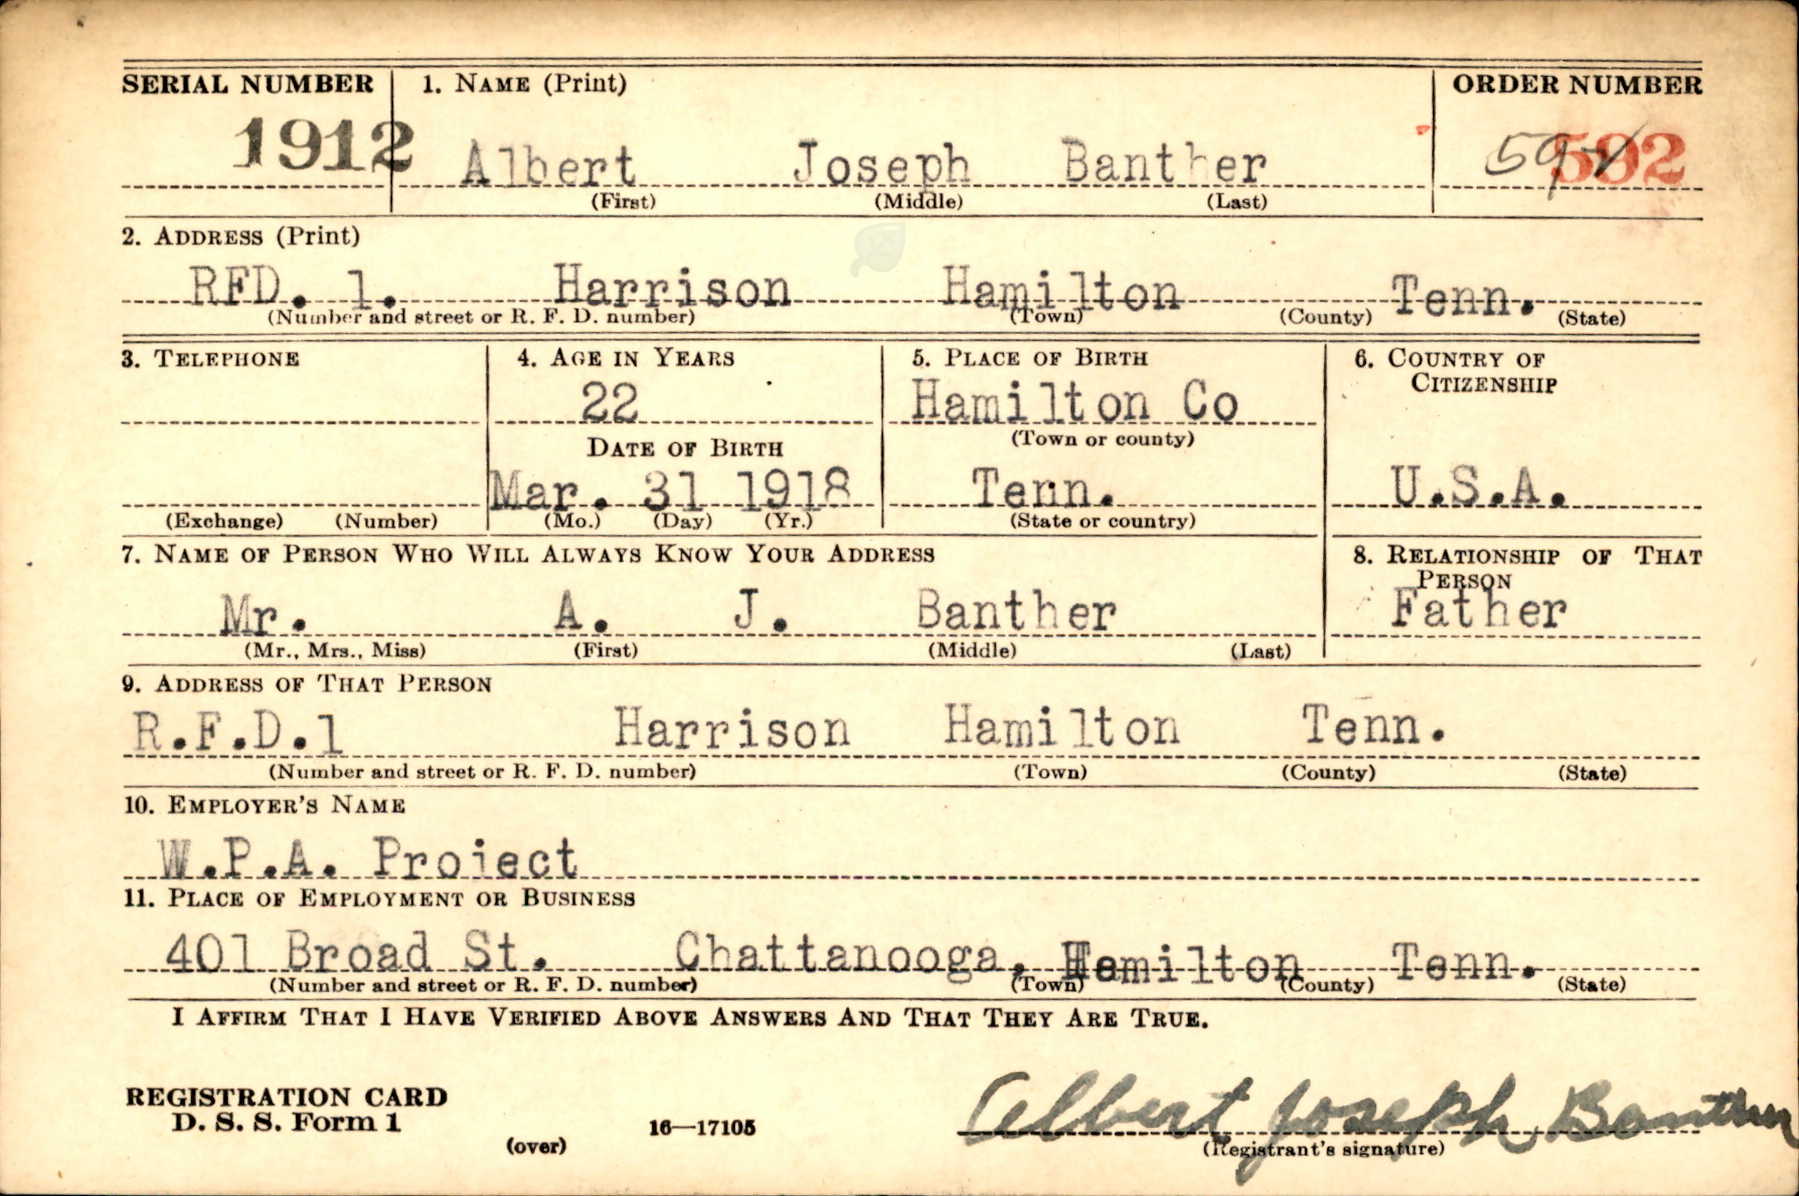 SERIAL NUMBER 1. NAME (Print) ORDER NUMBER
1912 Albert Joseph Banther 592 592
(First) (Middle) (Last)
2. ADDRESS (Print)
RFD. 1. Harrison Hamilton Tenn.
(Number and street or R. F. D. number) (Town) (County) (State)
3. TELEPHONE 4. AGE IN YEARS 5. PLACE OF BIRTH 6. COUNTRY OF
CITIZENSHIP
22 Hamilton Co
(Town or county)
DATE OF BIRTH
Mar. 31 1918 Tenn. U.S.A.
(Exchange) (Number) (Mo.) (Day) (Yr.) (State or country)
7. NAME OF PERSON WHO WILL ALWAYS KNOW YOUR ADDRESS 8. RELATIONSHIP OF THAT
PERSON
Mr. A. J. Banther Father
(Mr., Mrs., Miss) (First) (Middle) (Last)
9. ADDRESS OF THAT PERSON
R.F.D.1 Harrison Hamilton Tenn.
(Number and street or R. F. D. number) (Town) (County) (State)
10. EMPLOYER'S NAME
W.P.A. Project
11. PLACE OF EMPLOYMENT OR BUSINESS
401 Broad St. Chattanooga, Hamilton Tenn.
(Number and street or R. F. D. number) (Town) (County) (State)
I AFFIRM THAT I HAVE VERIFIED ABOVE ANSWERS AND THAT THEY ARE TRUE.
REGISTRATION CARD
D. S. S. Form 1
(over) 16—17105
Albert Joseph Banther
(Registrant's signature)